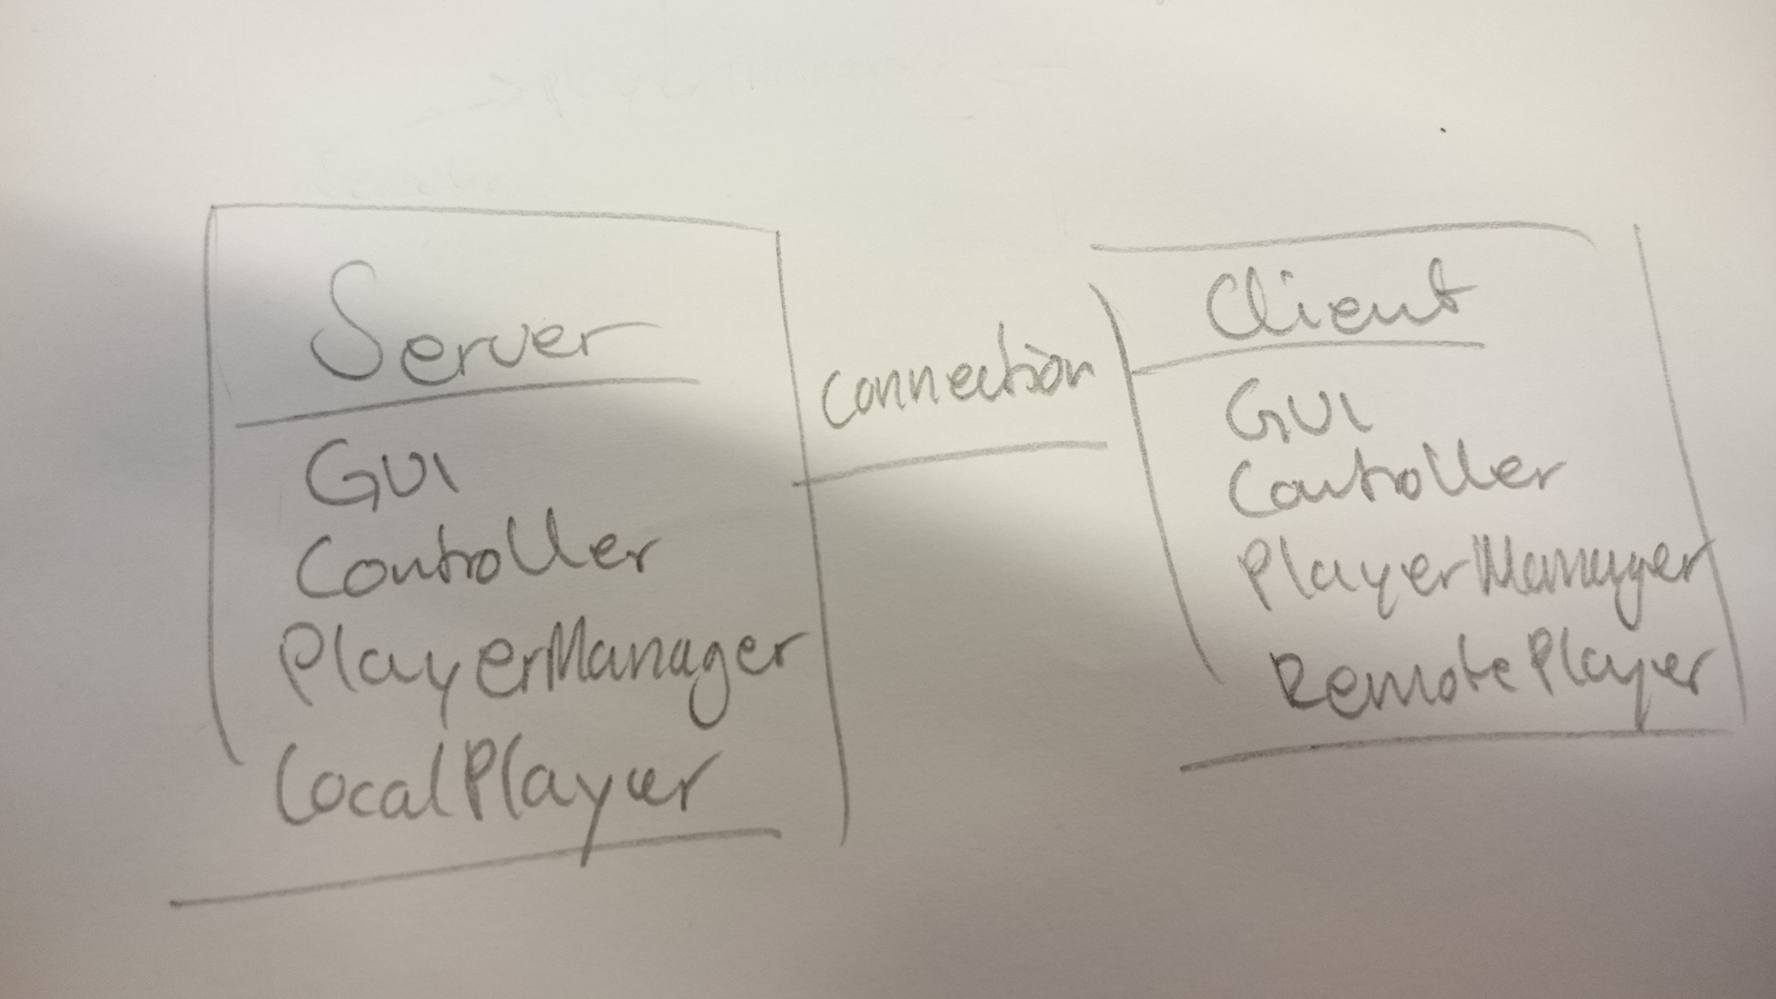 Server
GUI
Controller
PlayerManager
LocalPlayer
connection
Client
GUI
Controller
PlayerManager
RemotePlayer